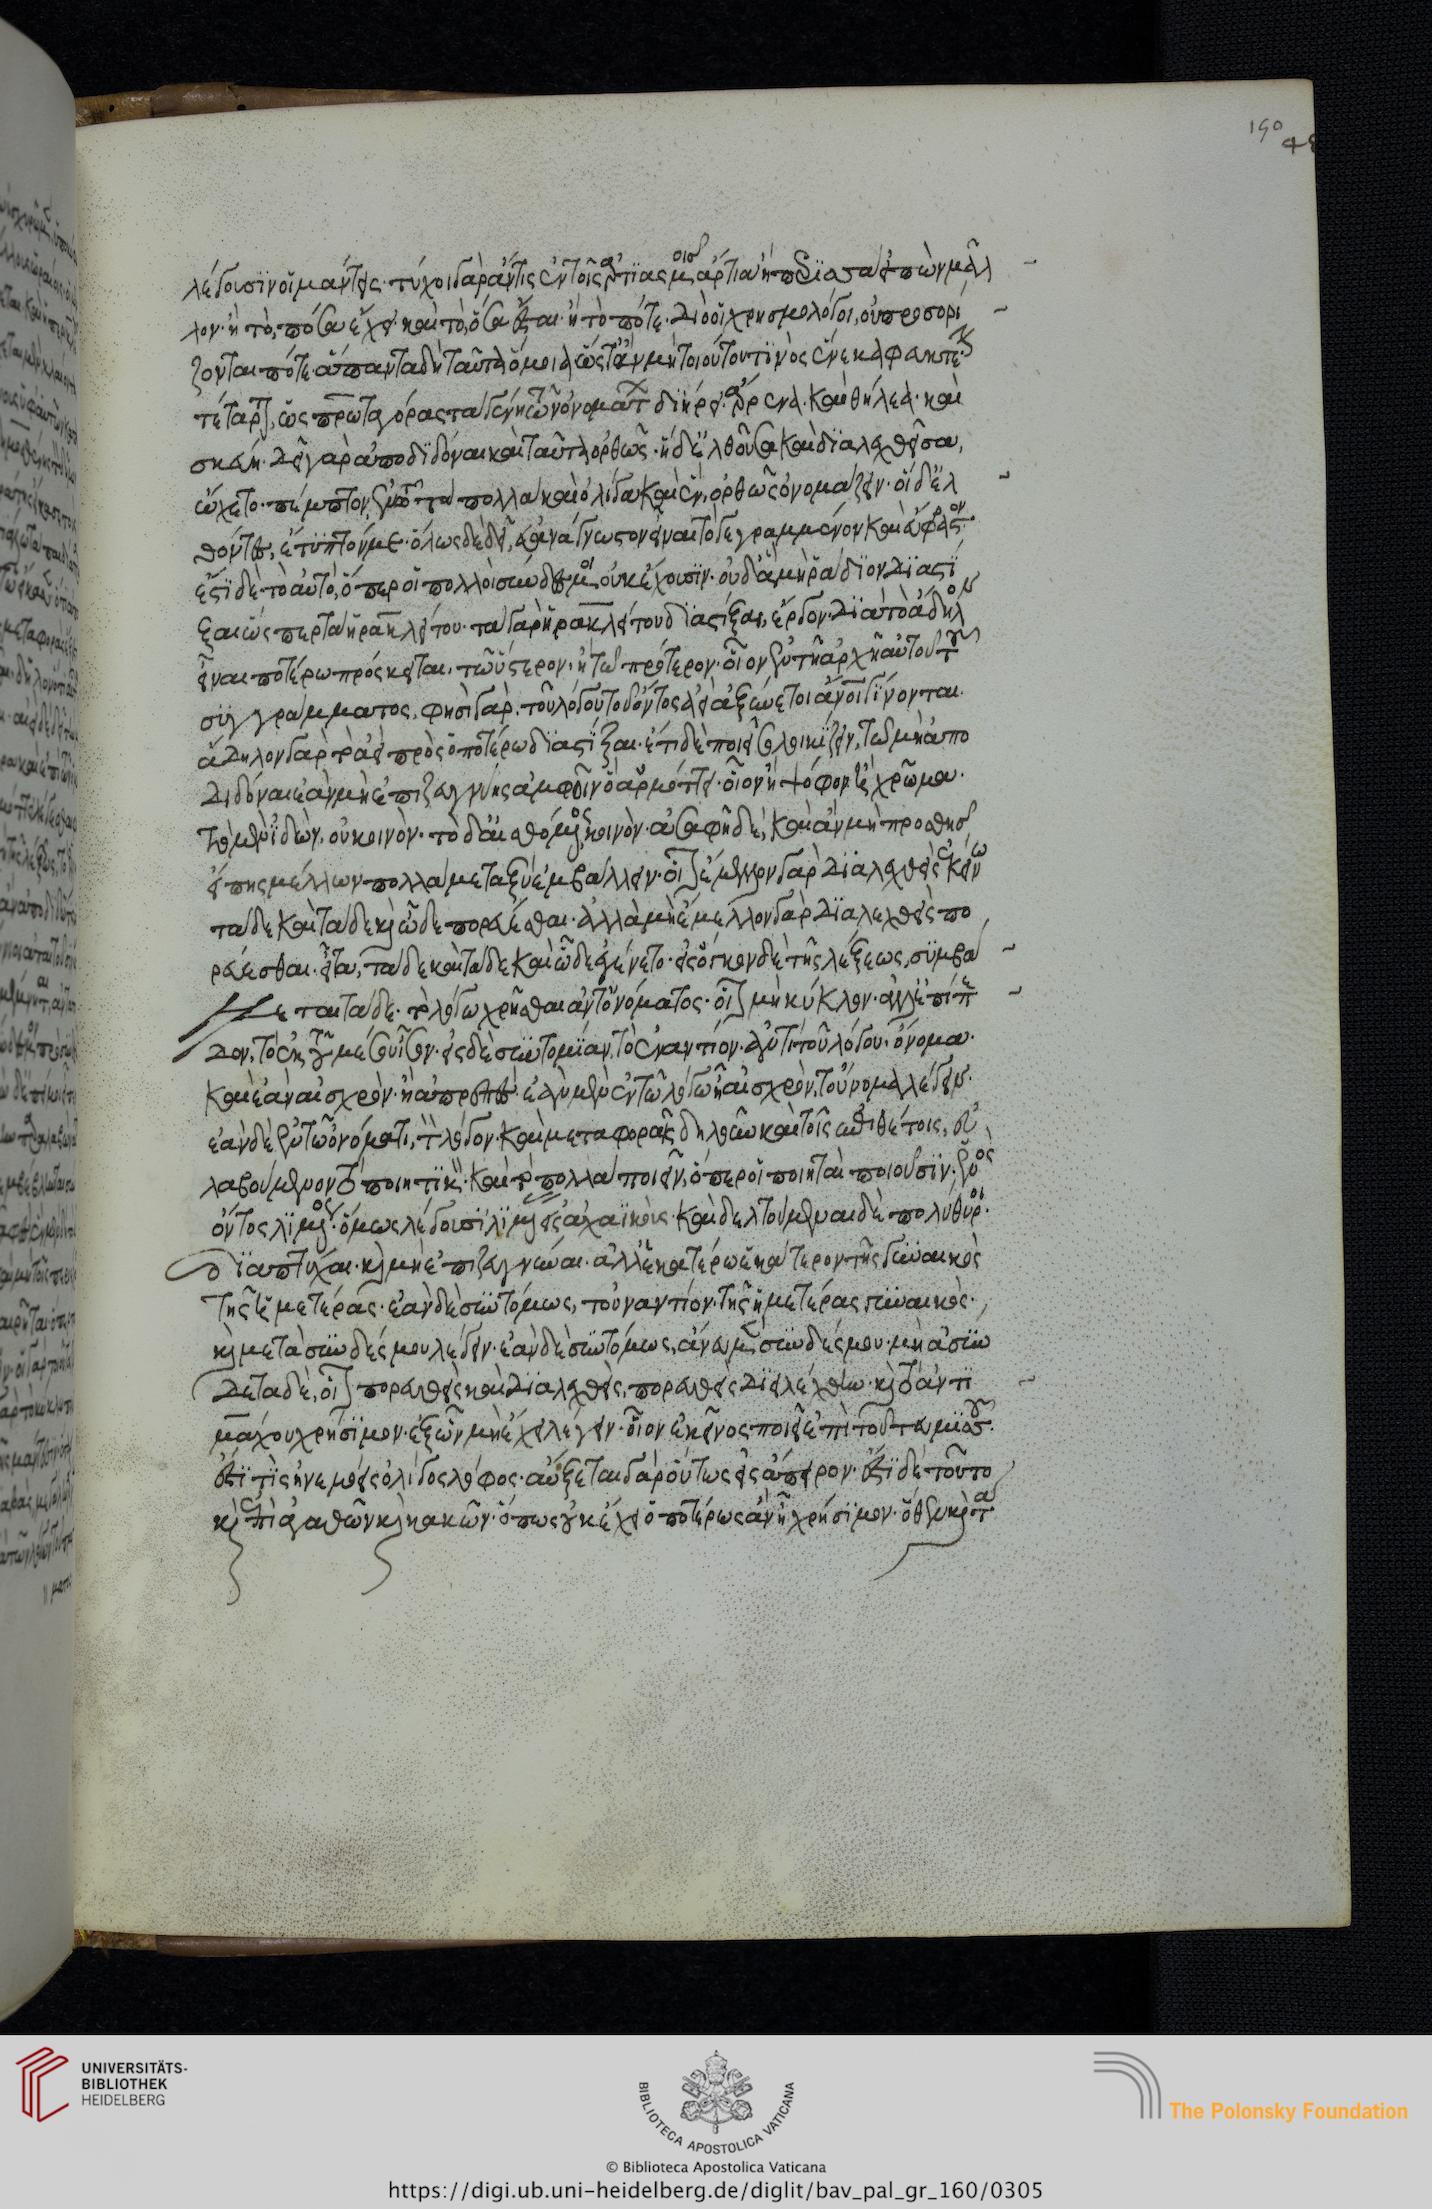 λέγουσιν οἱ μάντεις· τύχοι γὰρ ἄν τις ἐν τοῖς ἀρτιασμοῖς ἄρτια ἢ περισσὰ εἰπὼν μᾶλ
λον· ἢ τὸ, πόσα ἔχει· καὶ τὸ, ὅτι ἔσται· ἢ τὸ πότε· διὸ οἱ χρησμολόγοι, οὐ προσορί
ζονται πότε· ἅπαντα δὴ ταῦτα ὅμοια ὥστ' ἂν μὴ τοιούτου τινὸς ἕνεκα φευκτέον
τέταρτον, ὡς πρωταγόρας τὰ γένη τῶν ὀνομάτων διήρει· ἄρρενα· καὶ θήλεα· καὶ
σκεύη· δεῖ γὰρ ἀποδιδόναι καὶ ταῦτα ὀρθῶς· ἡ δ' ἐλθοῦσα καὶ διαλεχθεῖσα,
ᾤχετο· πέμπτον, ἐν τῷ τὰ πολλὰ καὶ ὀλίγα καὶ ἓν, ὀρθῶς ὀνομάζειν· οἱ δ' ἐλ
θόντες, ἔτυπτόν με· ὅλως δὲ δεῖ, εὐανάγνωστον εἶναι τὸ γεγραμμένον καὶ εὔφραστον·
ἔστι δὲ τὸ αὐτό, ὅπερ οἱ πολλοὶ σύνδεσμοι οὐκ ἔχουσιν· οὐδ' ἃ μὴ ῥάδιον διαστί
ξαι ὥσπερ τὰ ἡρακλείτου· τὰ γὰρ ἡρακλείτου διαστίξαι, ἔργον· διὰ τὸ ἄδηλον
εἶναι ποτέρω πρόσκειται, τῶ ὕστερον· ἢ τῶ πρότερον· οἷον ἐν τῆ ἀρχῆ αὐτοῦ τοῦ
συγγράμματος, φησὶ γάρ, τοῦ λόγου τοῦ δέοντος ἀεὶ ἀξύνετοι ἄνθρωποι γίνονται·
ἄδηλον γὰρ τὸ ἀεὶ πρὸς ὁποτέρω διαστίξαι· ἔτι δὲ ποιεῖ σολοικίζειν, τὸ μὴ ἀπο
διδόναι ἐὰν μὴ ἐπιζευγνύης ἀμφοῖν ὃ ἁρμόττει· οἷον ἢ ψόφον ἢ χρῶμα·
τὸ μὲν ἰδὼν, οὐ κοινὸν· τὸ δ' αἰσθόμενος, κοινὸν· ἀσαφῆ δὲ, καὶ ἂν μὴ προσθεὶς
εἴπης μέλλων πολλὰ μεταξὺ ἐμβάλλειν· οἷον ἔμελλον γὰρ διαλεχθεὶς ἐκείνω
τάδε καὶ τάδε καὶ ὧδε πορεύεσθαι· ἀλλὰ μὴ ἔμελλον γὰρ διαλεχθεὶς πο
ρεύεσθαι· εἶτα, τάδε καὶ τάδε καὶ ὧδε ἐγένετο· εἰς ὄγκον δὲ τῆς λέξεως, συμβάλ
λεται τάδε· τὸ λόγω χρῆσθαι ἀντ' ὀνόματος· οἷον μὴ κύκλον· ἀλλ' ἐπίπε
δον, τὸ ἐκ τοῦ μέσου ἴσον· εἰς δὲ συντομίαν, τὸ ἐναντίον· ἀντὶ τοῦ λόγου· ὄνομα·
καὶ ἐὰν αἰσχρὸν· ἢ ἀπρεπὲς· ἐὰν μὲν ἐν τῶ λόγω ἦ αἰσχρὸν, τοὔνομα λέγειν·
ἐὰν δὲ ἐν τῶ ὀνόματι, τὸν λόγον· καὶ μεταφοραῖς δηλοῦν καὶ τοῖς ἐπιθέτοις, εὐ
λαβούμενον τὸ ποιητικὸν· καὶ τὸ ἓν πολλὰ ποιεῖν, ὅπερ οἱ ποιηταὶ ποιοῦσιν· ἑνὸς
ὄντος λιμένος· ὅμως λέγουσι λιμένας εἰς ἀχαϊκοὺς· καὶ δέλτου μὲν αἵδε πολύθυροι
διαπτυχαί· καὶ μὴ ἐπιζευγνύναι· ἀλλ' ἑκατέρω ἑκάτερον τῆς γυναικὸς
τῆς ἡμετέρας· ἐὰν δὲ συντόμως, τοὐναντίον· τῆς ἡμετέρας γυναικὸς·
καὶ μετὰ συνδέσμου λέγειν· ἐὰν δὲ συντόμως, ἄνευ μὲν συνδέσμου· μὴ ἀσύν
δετα δὲ, οἷον πορευθεὶς καὶ διαλεχθεὶς, πορευθεὶς διελέχθην· καὶ τὸ ἀντι
μάχου χρήσιμον· ἐξ ὧν μὴ ἔχει λέγειν· ὃ ἐκεῖνος ποιεῖ ἐπὶ τοῦ τευμησσοῦ·
ἔστι τις ἠνεμόεις ὀλίγος λόφος· αὔξεται γὰρ οὕτως εἰς ἄπειρον· ἔστι δὲ τοῦτο
καὶ ἐπὶ ἀγαθῶν καὶ κακῶν· ὅπως οὐκ ἔχει ὁποτέρως ἂν ἦ χρήσιμον· ὅθεν καὶ τὰ
190
© Biblioteca Apostolica Vaticana
UNIVERSITÄTS-
BIBLIOTHEK
HEIDELBERG
BIBLIOTECA APOSTOLICA VATICANA
The Polonsky Foundation
https://digi.ub.uni-heidelberg.de/diglit/bav_pal_gr_160/0305